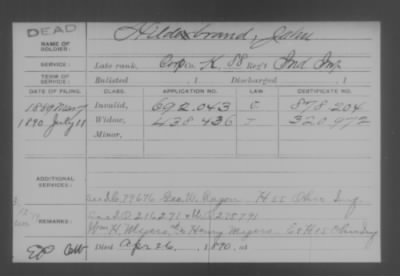 DEAD
NAME OF SOLDIER: Hildebrand, John
SERVICE: Late rank, Corp Co. K, 88 Reg't Ind Inf
TERM OF SERVICE: Enlisted , 1 Discharged , 1
DATE OF FILING. CLASS. APPLICATION NO. LAW. CERTIFICATE NO.
1889 May 7 Invalid, 692.043 C 878.204
1890 July 11 Widow, 438.436 J 320.972
Minor,
ADDITIONAL SERVICES:
Geo. W. Ragon H 55 Ohio Inf
REMARKS: 216271 275791
Wm H. Meyers Henry Meyers H 55 Ohio Inf
Died Apr 26, 1890,